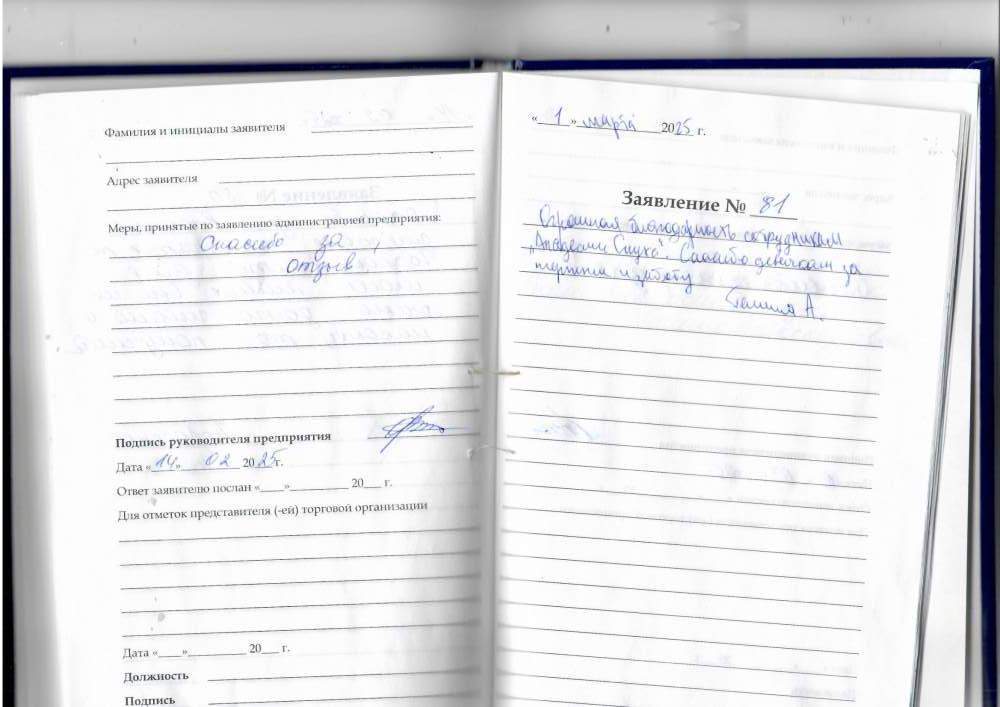 Фамилия и инициалы заявителя
Адрес заявителя
Меры, принятые по заявлению администрацией предприятия:
Спасибо за
отзыв
Подпись руководителя предприятия
Дата «14» 02 2025г.
Ответ заявителю послан «___»__________ 20___ г.
Для отметок представителя (-ей) торговой организации
Дата «____»__________ 20___ г.
Должность
Подпись
«1» марта 2025 г.
Заявление № 81
Огромная благодарность сотрудникам
"Академии Слуха". Спасибо девочкам за
терпение и работу
Галина А.